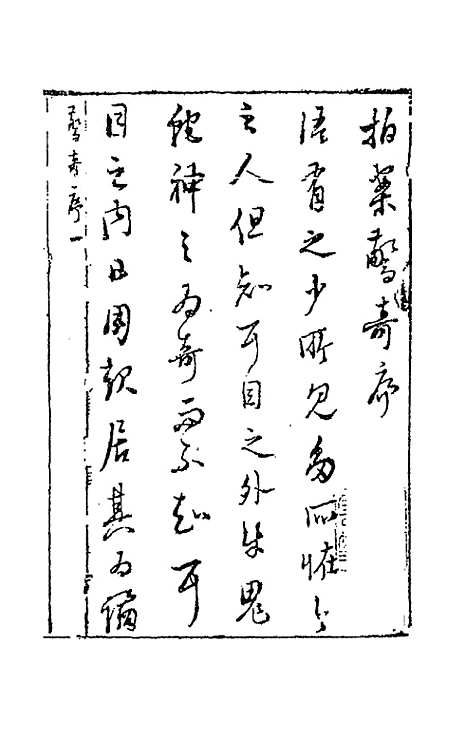 拍案驚奇序
語有之少所見多所怪今
之人但知耳目之外牛鬼
蛇神之為奇而不知耳
目之內日用起居其為譎
驚奇序 一